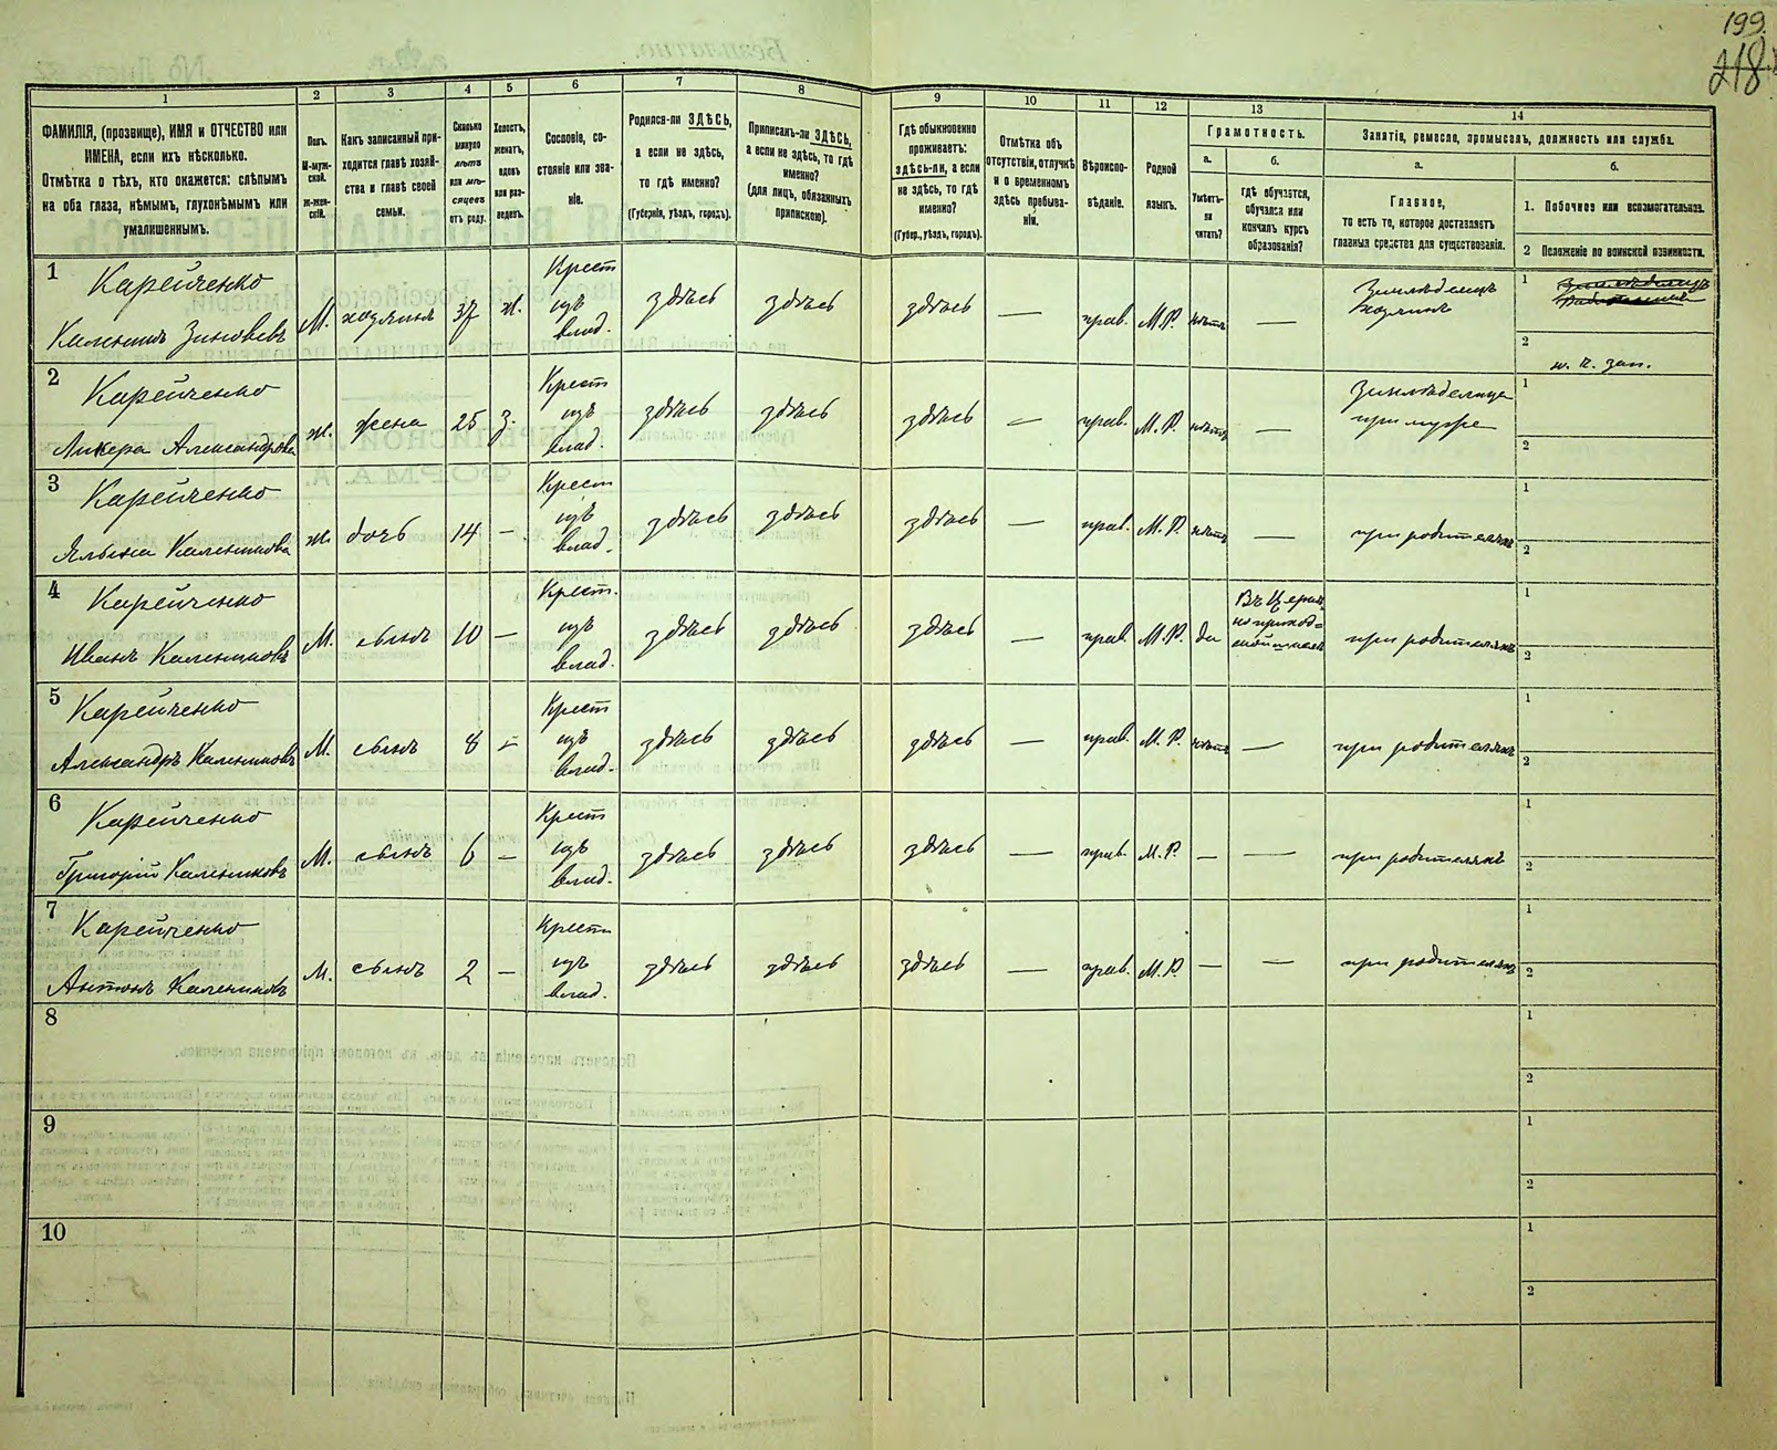 199.
218
1
2
3
4
5
6
7
8
9
10
11
12
13
14
ФАМИЛІЯ, (прозвище), ИМЯ и ОТЧЕСТВО или
ИМЕНА, если ихъ нѣсколько.
Отмѣтка о тѣхъ, кто окажется: слѣпымъ
на оба глаза, нѣмымъ, глухонѣмымъ или
умалишеннымъ.
Полъ.
М-муж-
ской.
Ж-жен-
скій.
Какъ записанный при-
ходится главѣ хозяй-
ства и главѣ своей
семьи.
Сколько
минуло
лѣтъ
или мѣ-
сяцевъ
отъ роду.
Холостъ,
женатъ,
вдовъ
или раз-
веденъ.
Сословіе, со-
стояніе или зва-
ніе.
Родился-ли ЗДѢСЬ,
а если не здѣсь,
то гдѣ именно?
(Губернія, уѣздъ, городъ).
Приписанъ-ли ЗДѢСЬ,
а если не здѣсь, то гдѣ
именно?
(для лицъ, обязанныхъ
припискою).
Гдѣ обыкновенно
проживаетъ:
здѣсь-ли, а если
не здѣсь, то гдѣ
именно?
(Губер., уѣздъ, городъ).
Отмѣтка объ
отсутствіи, отлучкѣ
и о временномъ
здѣсь пребыва-
ніи.
Вѣроиспо-
вѣданіе.
Родной
языкъ.
Грамотность.
а.
Умѣетъ-
ли
читать?
б.
гдѣ обучается,
обучался или
кончилъ курсъ
образованія?
Занятіе, ремесло, промыселъ, должность или служба.
а.
Главное,
то есть то, которое доставляетъ
главныя средства для существованія.
б.
1. Побочное или вспомогательное.
2 Положеніе по воинской повинности.
1 Карейченко
Каленикъ Зиновьевъ
М. хозяинъ 37 ж. Крест изъ влад. здѣсь здѣсь здѣсь — прав. М.Р. нѣтъ — Земледѣлецъ хозяинъ 1
2 н. к. зап.
2 Карейченко
Александрова
ж. жена 25 з. Крест изъ влад. здѣсь здѣсь здѣсь — прав. М.Р. нѣтъ — Земледѣлица при мужѣ 1
2
3 Карейченко
Каленикова
ж. дочь 14 — Крест изъ влад. здѣсь здѣсь здѣсь — прав. М.Р. нѣтъ — при родителяхъ 1
2
4 Карейченко
Иванъ Калениковъ
М. сынъ 10 — Крест. изъ влад. здѣсь здѣсь здѣсь — прав. М.Р. да Въ Церков но приход= ской школѣ при родителяхъ 1
2
5 Карейченко
Александръ Калениковъ
М. сынъ 8 — Крест изъ влад. здѣсь здѣсь здѣсь — прав. М.Р. нѣтъ — при родителяхъ 1
2
6 Карейченко
Григорій Калениковъ
М. сынъ 6 — Крест изъ влад. здѣсь здѣсь здѣсь — прав. М.Р. — — при родителяхъ 1
2
7 Карейченко
Антонъ Калениковъ
М. сынъ 2 — Крест изъ влад. здѣсь здѣсь здѣсь — прав. М.Р. — — при родителяхъ 1
2
8 1
2
9 1
2
10 1
2